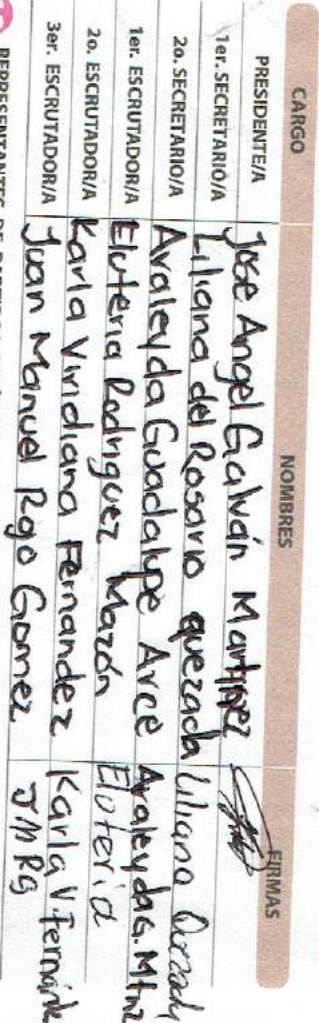 CARGO NOMBRES FIRMAS
PRESIDENTE/A Jose Angel Galván Martinez
1er. SECRETARIO/A Liliana del Rosario quezada Liliana Quezada
2o. SECRETARIO/A Araleyda Guadalupe Arce Araleyda G. Mtnz
1er. ESCRUTADOR/A Eluteria Rodriguez Mazón Eluteria
2o. ESCRUTADOR/A Karla Viridiana Fernandez Karla V Fernánde
3er. ESCRUTADOR/A Juan Manuel Rojo Gomez JMRG
REPRESENTANTES DE PARTIDOS